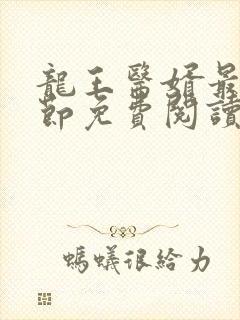 龍王醫婿最
節免費閱讀
螞蟻很給力